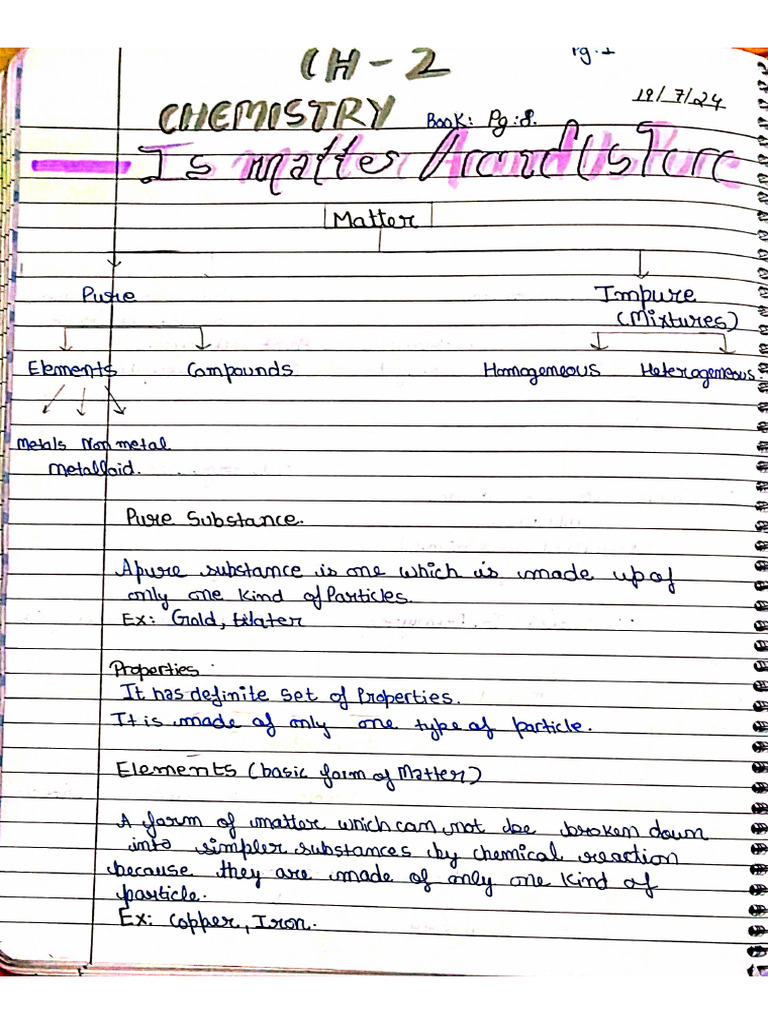 Pg.1
CH-2
18/7/24
CHEMISTRY Book: Pg:8.
Is matter Around us Pure
Matter
Pure Impure
(Mixtures)
Elements Compounds Homogeneous Heterogeneous.
Metals Non metal
Metalloid.
Pure Substance.
A pure substance is one which is made up of
only one kind of Particles.
Ex: Gold,
Properties
It has definite set of Properties.
It is made of only one type of particle.
Elements (basic form of Matter)
A form of matter which can not be broken down
into simpler substances by chemical reaction
because they are made of only one kind of
particle.
Ex: Copper, Iron.